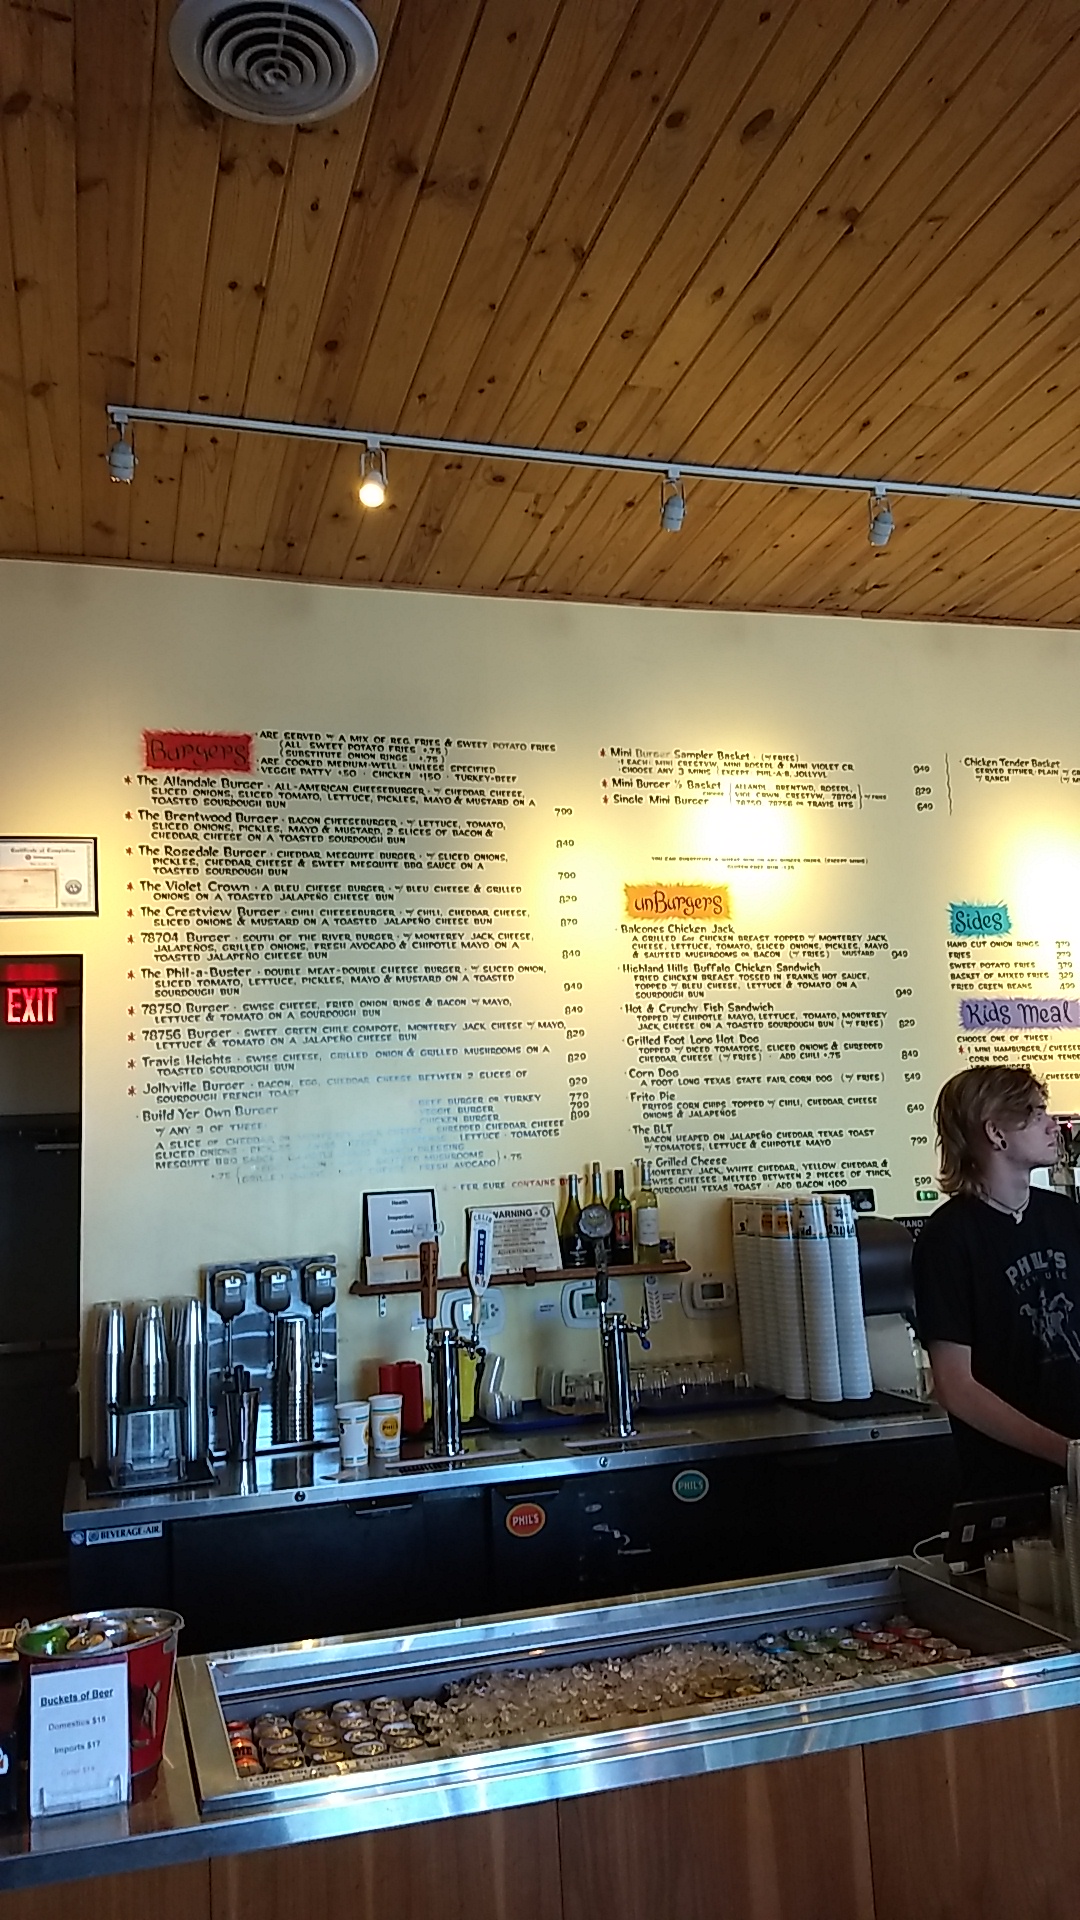 Burgers
· ARE SERVED W/ A MIX OF REG. FRIES & SWEET POTATO FRIES
(ALL SWEET POTATO FRIES +.75)
(SUBSTITUTE ONION RINGS +.75)
· ARE COOKED MEDIUM-WELL - UNLESS SPECIFIED
· VEGGIE PATTY +50 · CHICKEN +150 · TURKEY-BEEF
* The Allandale Burger · ALL-AMERICAN CHEESEBURGER · W/ CHEDDAR CHEESE,
SLICED ONIONS, SLICED TOMATO, LETTUCE, PICKLES, MAYO & MUSTARD ON A
TOASTED SOURDOUGH BUN 790
* The Brentwood Burger · BACON CHEESEBURGER · W/ LETTUCE, TOMATO,
SLICED ONIONS, PICKLES, MAYO & MUSTARD, 2 SLICES OF BACON &
CHEDDAR CHEESE ON A TOASTED SOURDOUGH BUN 840
* The Rosedale Burger · CHEDDAR MESQUITE BURGER · W/ SLICED ONIONS,
PICKLES, CHEDDAR CHEESE & SWEET MESQUITE BBQ SAUCE ON A
TOASTED SOURDOUGH BUN 790
* The Violet Crown · A BLEU CHEESE BURGER · W/ BLEU CHEESE & GRILLED
ONIONS ON A TOASTED JALAPEÑO CHEESE BUN 820
* The Crestview Burger · CHILI CHEESEBURGER · W/ CHILI, CHEDDAR CHEESE,
SLICED ONIONS & MUSTARD ON A TOASTED JALAPEÑO CHEESE BUN 870
* 78704 Burger · SOUTH OF THE RIVER BURGER · W/ MONTEREY JACK CHEESE,
JALAPEÑOS, GRILLED ONIONS, FRESH AVOCADO & CHIPOTLE MAYO ON A
TOASTED JALAPEÑO CHEESE BUN 840
* The Phil-a-Buster · DOUBLE MEAT-DOUBLE CHEESE BURGER · W/ SLICED ONION,
SLICED TOMATO, LETTUCE, PICKLES, MAYO & MUSTARD ON A TOASTED
SOURDOUGH BUN 940
* 78750 Burger · SWISS CHEESE, FRIED ONION RINGS & BACON W/ MAYO,
LETTUCE & TOMATO ON A SOURDOUGH BUN 840
* 78756 Burger · SWEET GREEN CHILE COMPOTE, MONTEREY JACK CHEESE W/ MAYO,
LETTUCE & TOMATO ON A JALAPEÑO CHEESE BUN 820
* Travis Heights · SWISS CHEESE, GRILLED ONION & GRILLED MUSHROOMS ON A
TOASTED SOURDOUGH BUN 820
* Jollyville Burger · BACON, EGG, CHEDDAR CHEESE BETWEEN 2 SLICES OF
SOURDOUGH FRENCH TOAST 920
· Build Yer Own Burger
BEEF BURGER OR TURKEY 770
VEGGIE BURGER 790
CHICKEN BURGER 890
W/ ANY 3 OF THESE:
A SLICE OF CHEDDAR
SHREDDED CHEDDAR CHEESE
SLICED ONIONS
LETTUCE · TOMATOES
MESQUITE BBQ SAUCE
MUSHROOMS
FRESH AVOCADO
+.75
* - FER SURE CONTAINS
* Mini Burger Sampler Basket · (W/ FRIES)
· 1 EACH: MINI CRESTVW, MINI ROSEDL & MINI VIOLET CR.
· CHOOSE ANY 3 MINIS (EXCEPT PHIL-A-B, JOLLYVL 940
* Mini Burger ½ Basket 820
* Single Mini Burger 640
ALLANDL, BRENTWD, ROSEDL,
VIOL CROWN, CRESTVW, 78704
78750, 78756 OR TRAVIS HTS
W/ FRIES
· Chicken Tender Basket
SERVED EITHER PLAIN
W/ RANCH
unBurgers
· Balcones Chicken Jack
A GRILLED 6oz CHICKEN BREAST TOPPED W/ MONTEREY JACK
CHEESE, LETTUCE, TOMATO, SLICED ONIONS, PICKLES, MAYO
& SAUTEED MUSHROOMS OR BACON (W/ FRIES) MUSTARD 940
· Highland Hills Buffalo Chicken Sandwich
FRIED CHICKEN BREAST, TOSSED IN FRANKS HOT SAUCE,
TOPPED W/ BLEU CHEESE, LETTUCE & TOMATO ON A
SOURDOUGH BUN 940
· Hot & Crunchy Fish Sandwich
TOPPED W/ CHIPOTLE MAYO, LETTUCE, TOMATO, MONTEREY
JACK CHEESE ON A TOASTED SOURDOUGH BUN (W/ FRIES) 820
· Grilled Foot Long Hot Dog
TOPPED W/ DICED TOMATOES, SLICED ONIONS & SHREDDED
CHEDDAR CHEESE (W/ FRIES) · ADD CHILI +.75 840
· Corn Dog
A FOOT LONG TEXAS STATE FAIR CORN DOG (W/ FRIES) 540
· Frito Pie
FRITOS CORN CHIPS TOPPED W/ CHILI, CHEDDAR CHEESE
ONIONS & JALAPEÑOS 640
· The BLT
BACON HEAPED ON JALAPEÑO CHEDDAR TEXAS TOAST
W/ TOMATOES, LETTUCE & CHIPOTLE MAYO 790
· The Grilled Cheese
MONTEREY JACK, WHITE CHEDDAR, YELLOW CHEDDAR &
SWISS CHEESES MELTED BETWEEN 2 PIECES OF THICK
SOURDOUGH TEXAS TOAST · ADD BACON +100 590
Sides
HAND CUT ONION RINGS
FRIES
SWEET POTATO FRIES
BASKET OF MIXED FRIES
FRIED GREEN BEANS
Kids Meal
CHOOSE ONE OF THESE:
* 1 MINI HAMBURGER / CHEESEB
· CORN DOG · CHICKEN TENDE
Certificate of Completion
EXIT
Health
Inspection
Available
Upon
WARNING
PHIL'S
ICEHOUSE
BEVERAGE-AIR
PHIL'S
PHIL'S
Buckets of Beer
Domestics $15
Imports $17